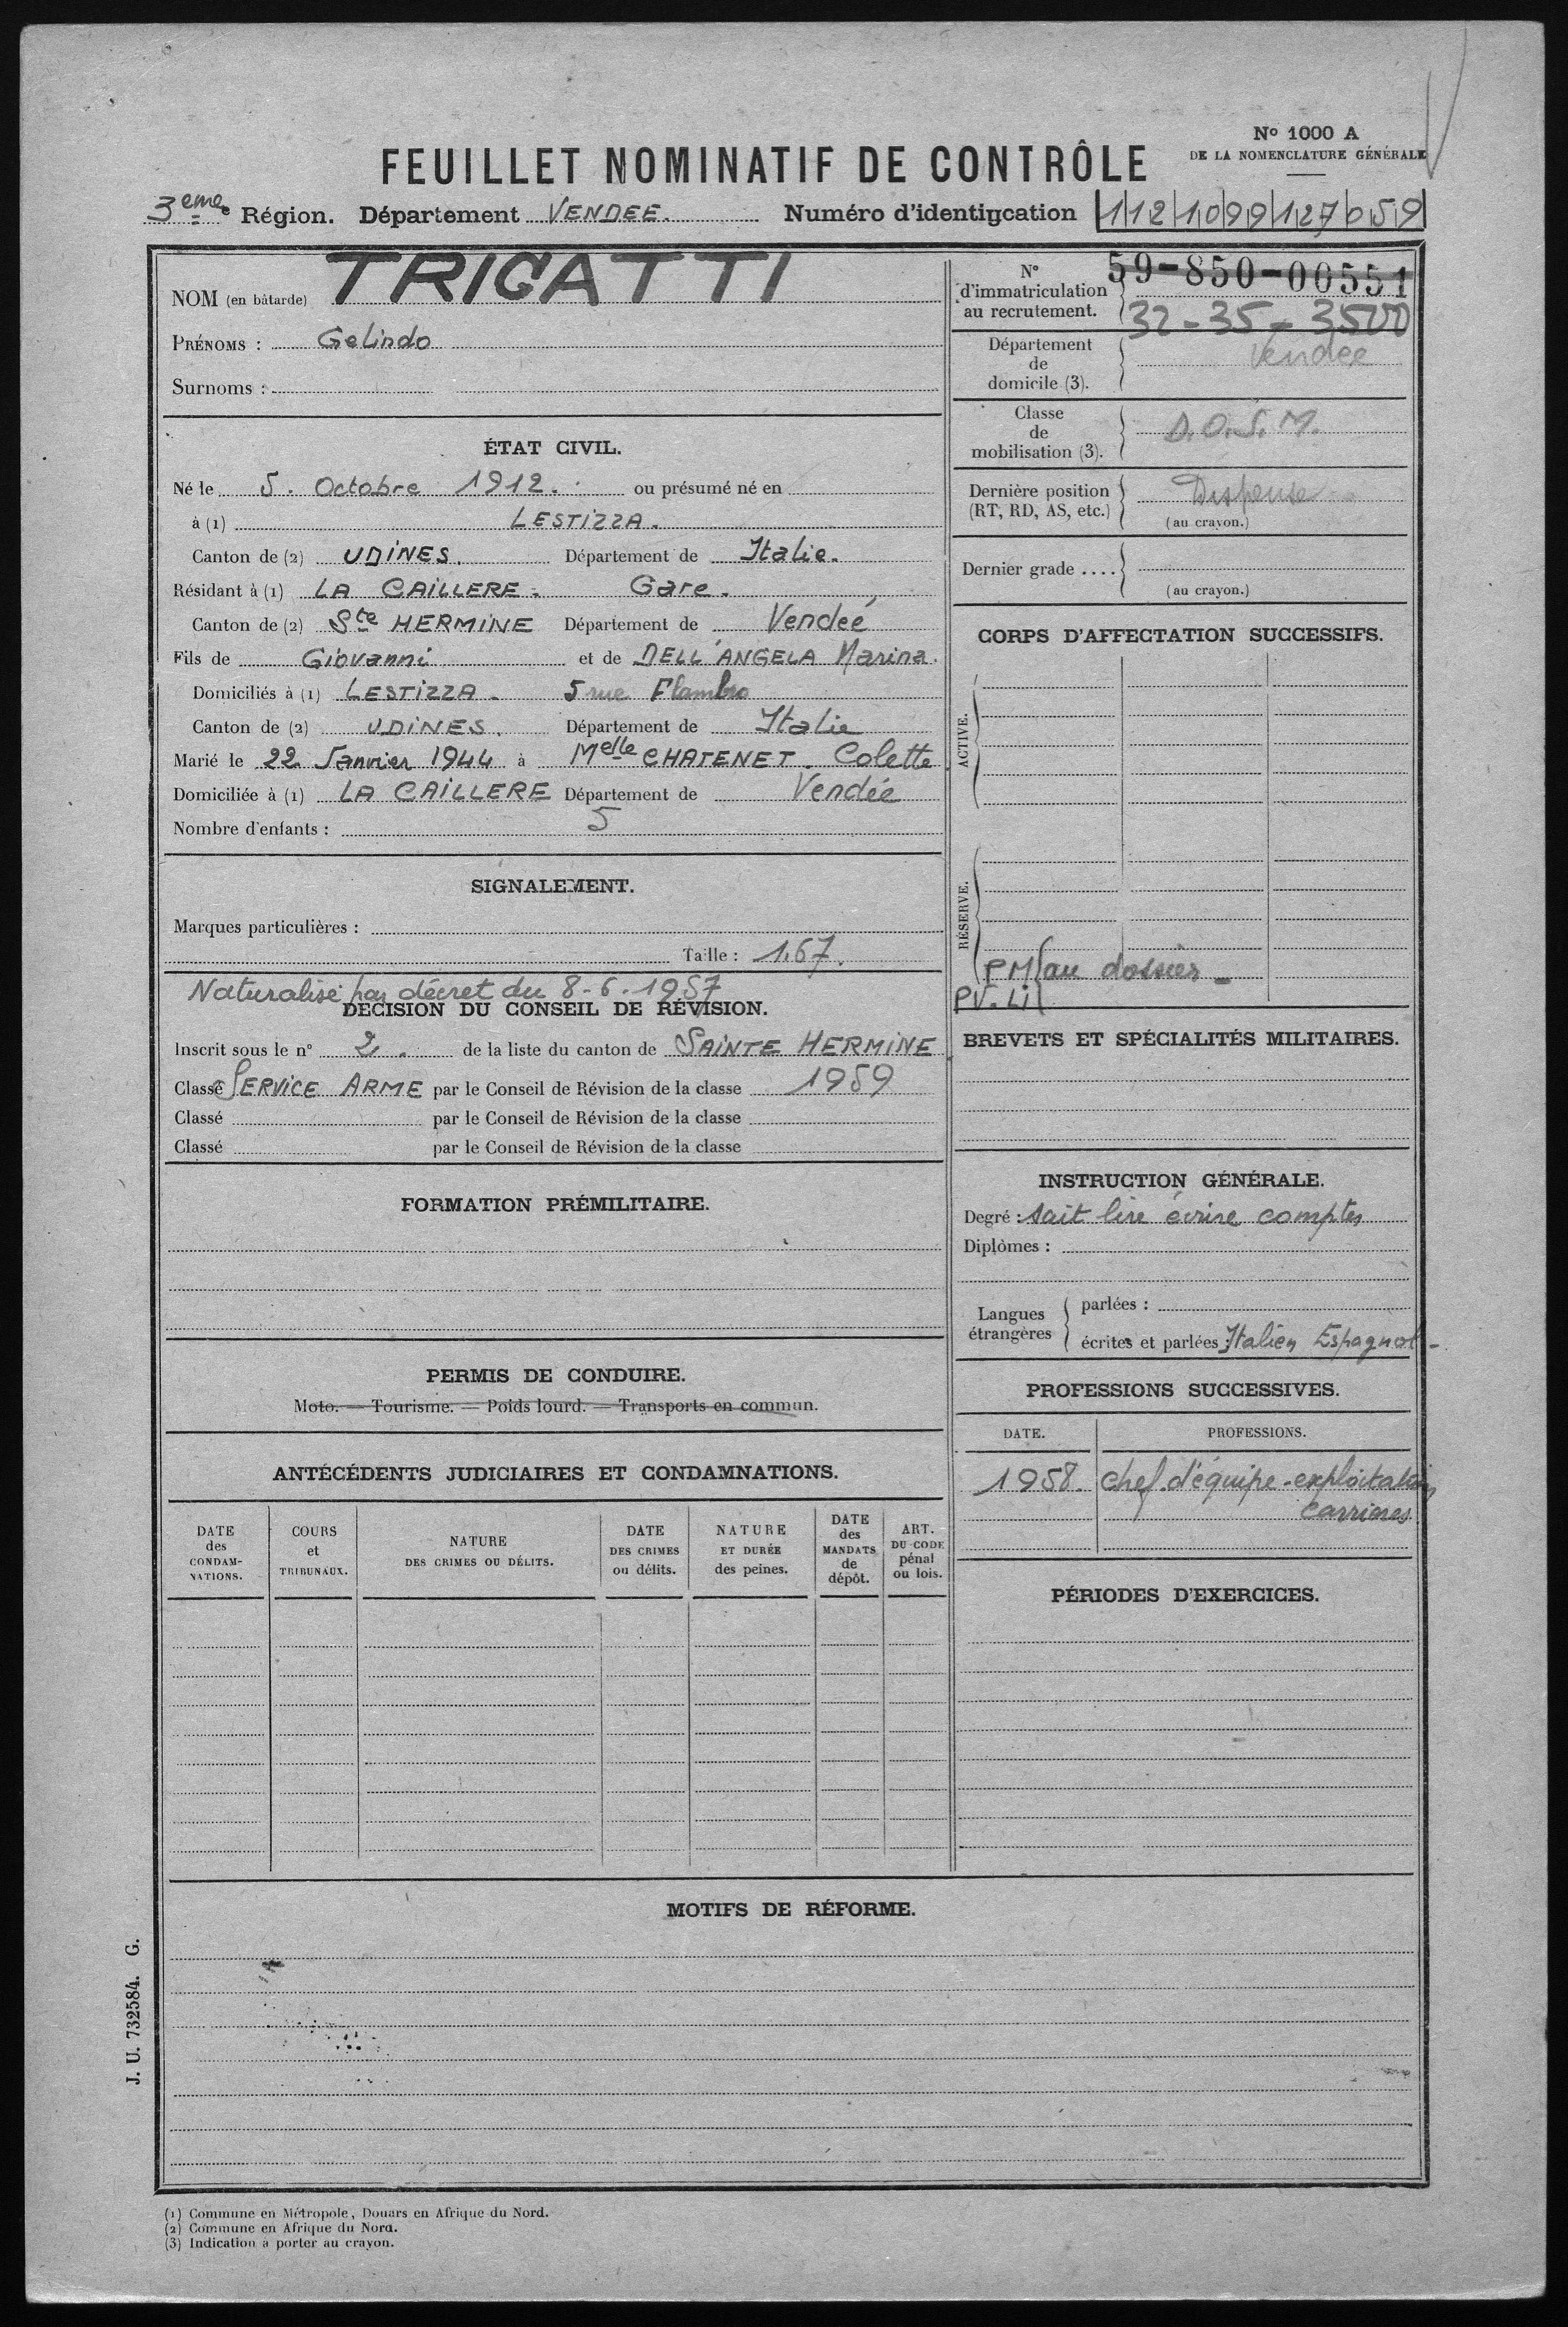 N° 1000 A
DE LA NOMENCLATURE GÉNÉRALE
FEUILLET NOMINATIF DE CONTRÔLE
3eme Région. Département VENDEE. Numéro d'identification 112 1099 127 059
NOM (en bâtarde) TRIGATTI
PRÉNOMS : Gelindo
Surnoms :
ÉTAT CIVIL.
Né le 5. Octobre 1912. ou présumé né en
à (1) LESTIZZA.
Canton de (2) UDINES. Département de Italie.
Résidant à (1) LA CAILLERE. Gare.
Canton de (2) Ste HERMINE Département de Vendeé
Fils de Giovanni et de DELL'ANGELA Marina.
Domiciliés à (1) LESTIZZA. 5 rue Flambro
Canton de (2) UDINES. Département de Italie
Marié le 22 Janvier 1944 à Melle CHATENET. Colette
Domiciliée à (1) LA CAILLERE Département de Vendée
Nombre d'enfants : 5
SIGNALEMENT.
Marques particulières :
Taille : 1.67.
Naturalisé par décret du 8-6-1957
DÉCISION DU CONSEIL DE RÉVISION.
Inscrit sous le n° 2. de la liste du canton de SAINTE HERMINE
Classé SERVICE ARME par le Conseil de Révision de la classe 1959
Classé par le Conseil de Révision de la classe
Classé par le Conseil de Révision de la classe
FORMATION PRÉMILITAIRE.
PERMIS DE CONDUIRE.
Moto. — Tourisme. — Poids lourd. — Transports en commun.
ANTÉCÉDENTS JUDICIAIRES ET CONDAMNATIONS.
DATE des CONDAMNATIONS.
COURS et TRIBUNAUX.
NATURE DES CRIMES OU DÉLITS.
DATE DES CRIMES ou délits.
NATURE ET DURÉE des peines.
DATE des MANDATS de dépôt.
ART. DU CODE pénal ou lois.
N° d'immatriculation au recrutement.
59-850-00551
32-35-3500
Département de domicile (3). Vendée
Classe de mobilisation (3). D.O.S.M.
Dernière position (RT, RD, AS, etc.) Dispense
(au crayon.)
Dernier grade ....
(au crayon.)
CORPS D'AFFECTATION SUCCESSIFS.
ACTIVE.
RÉSERVE.
PM au dossier
PV. Li
BREVETS ET SPÉCIALITÉS MILITAIRES.
INSTRUCTION GÉNÉRALE.
Degré : sait lire écrire compter
Diplômes :
Langues étrangères
parlées :
écrites et parlées : Italien Espagnol -
PROFESSIONS SUCCESSIVES.
DATE. PROFESSIONS.
1958. chef d'équipe-exploitation
carrières
PÉRIODES D'EXERCICES.
MOTIFS DE RÉFORME.
J. U. 732584. G.
(1) Commune en Métropole, Douars en Afrique du Nord.
(2) Commune en Afrique du Nord.
(3) Indication à porter au crayon.